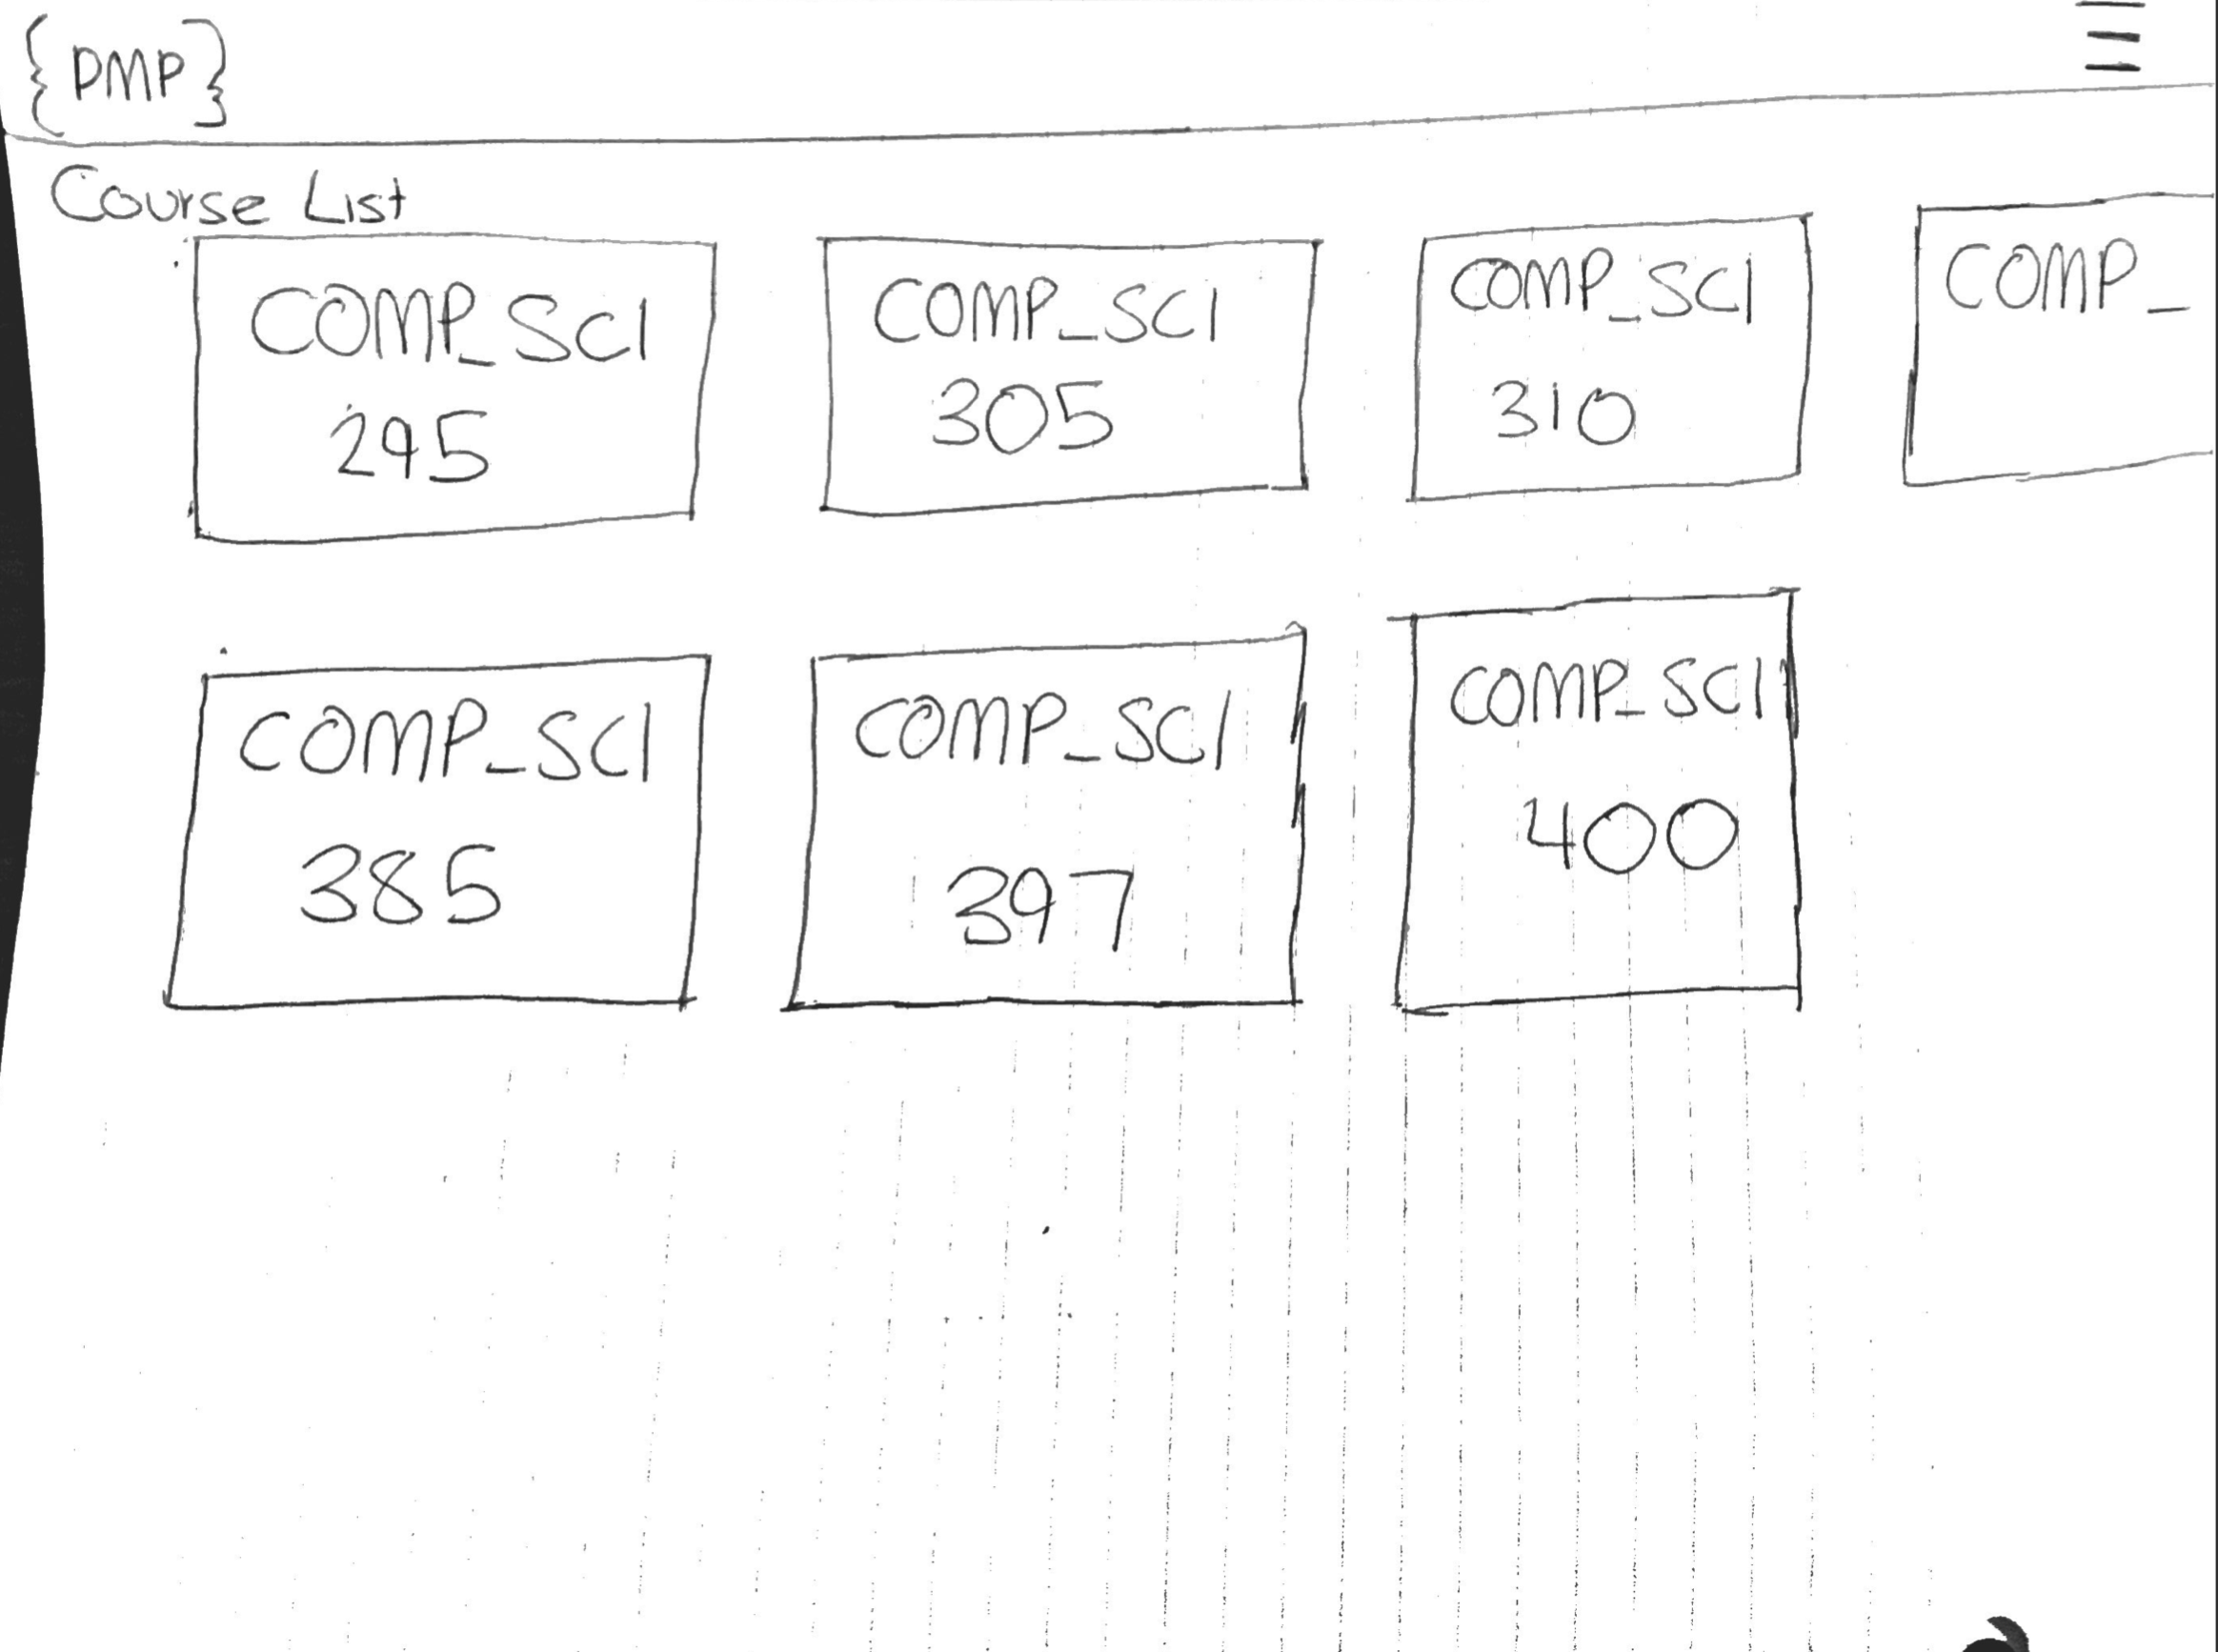 {PMP}
Course List
COMP_SCI
295
COMP_SCI
305
COMP_SCI
310
COMP_
COMP_SCI
385
COMP_SCI
397
COMP_SCI
400